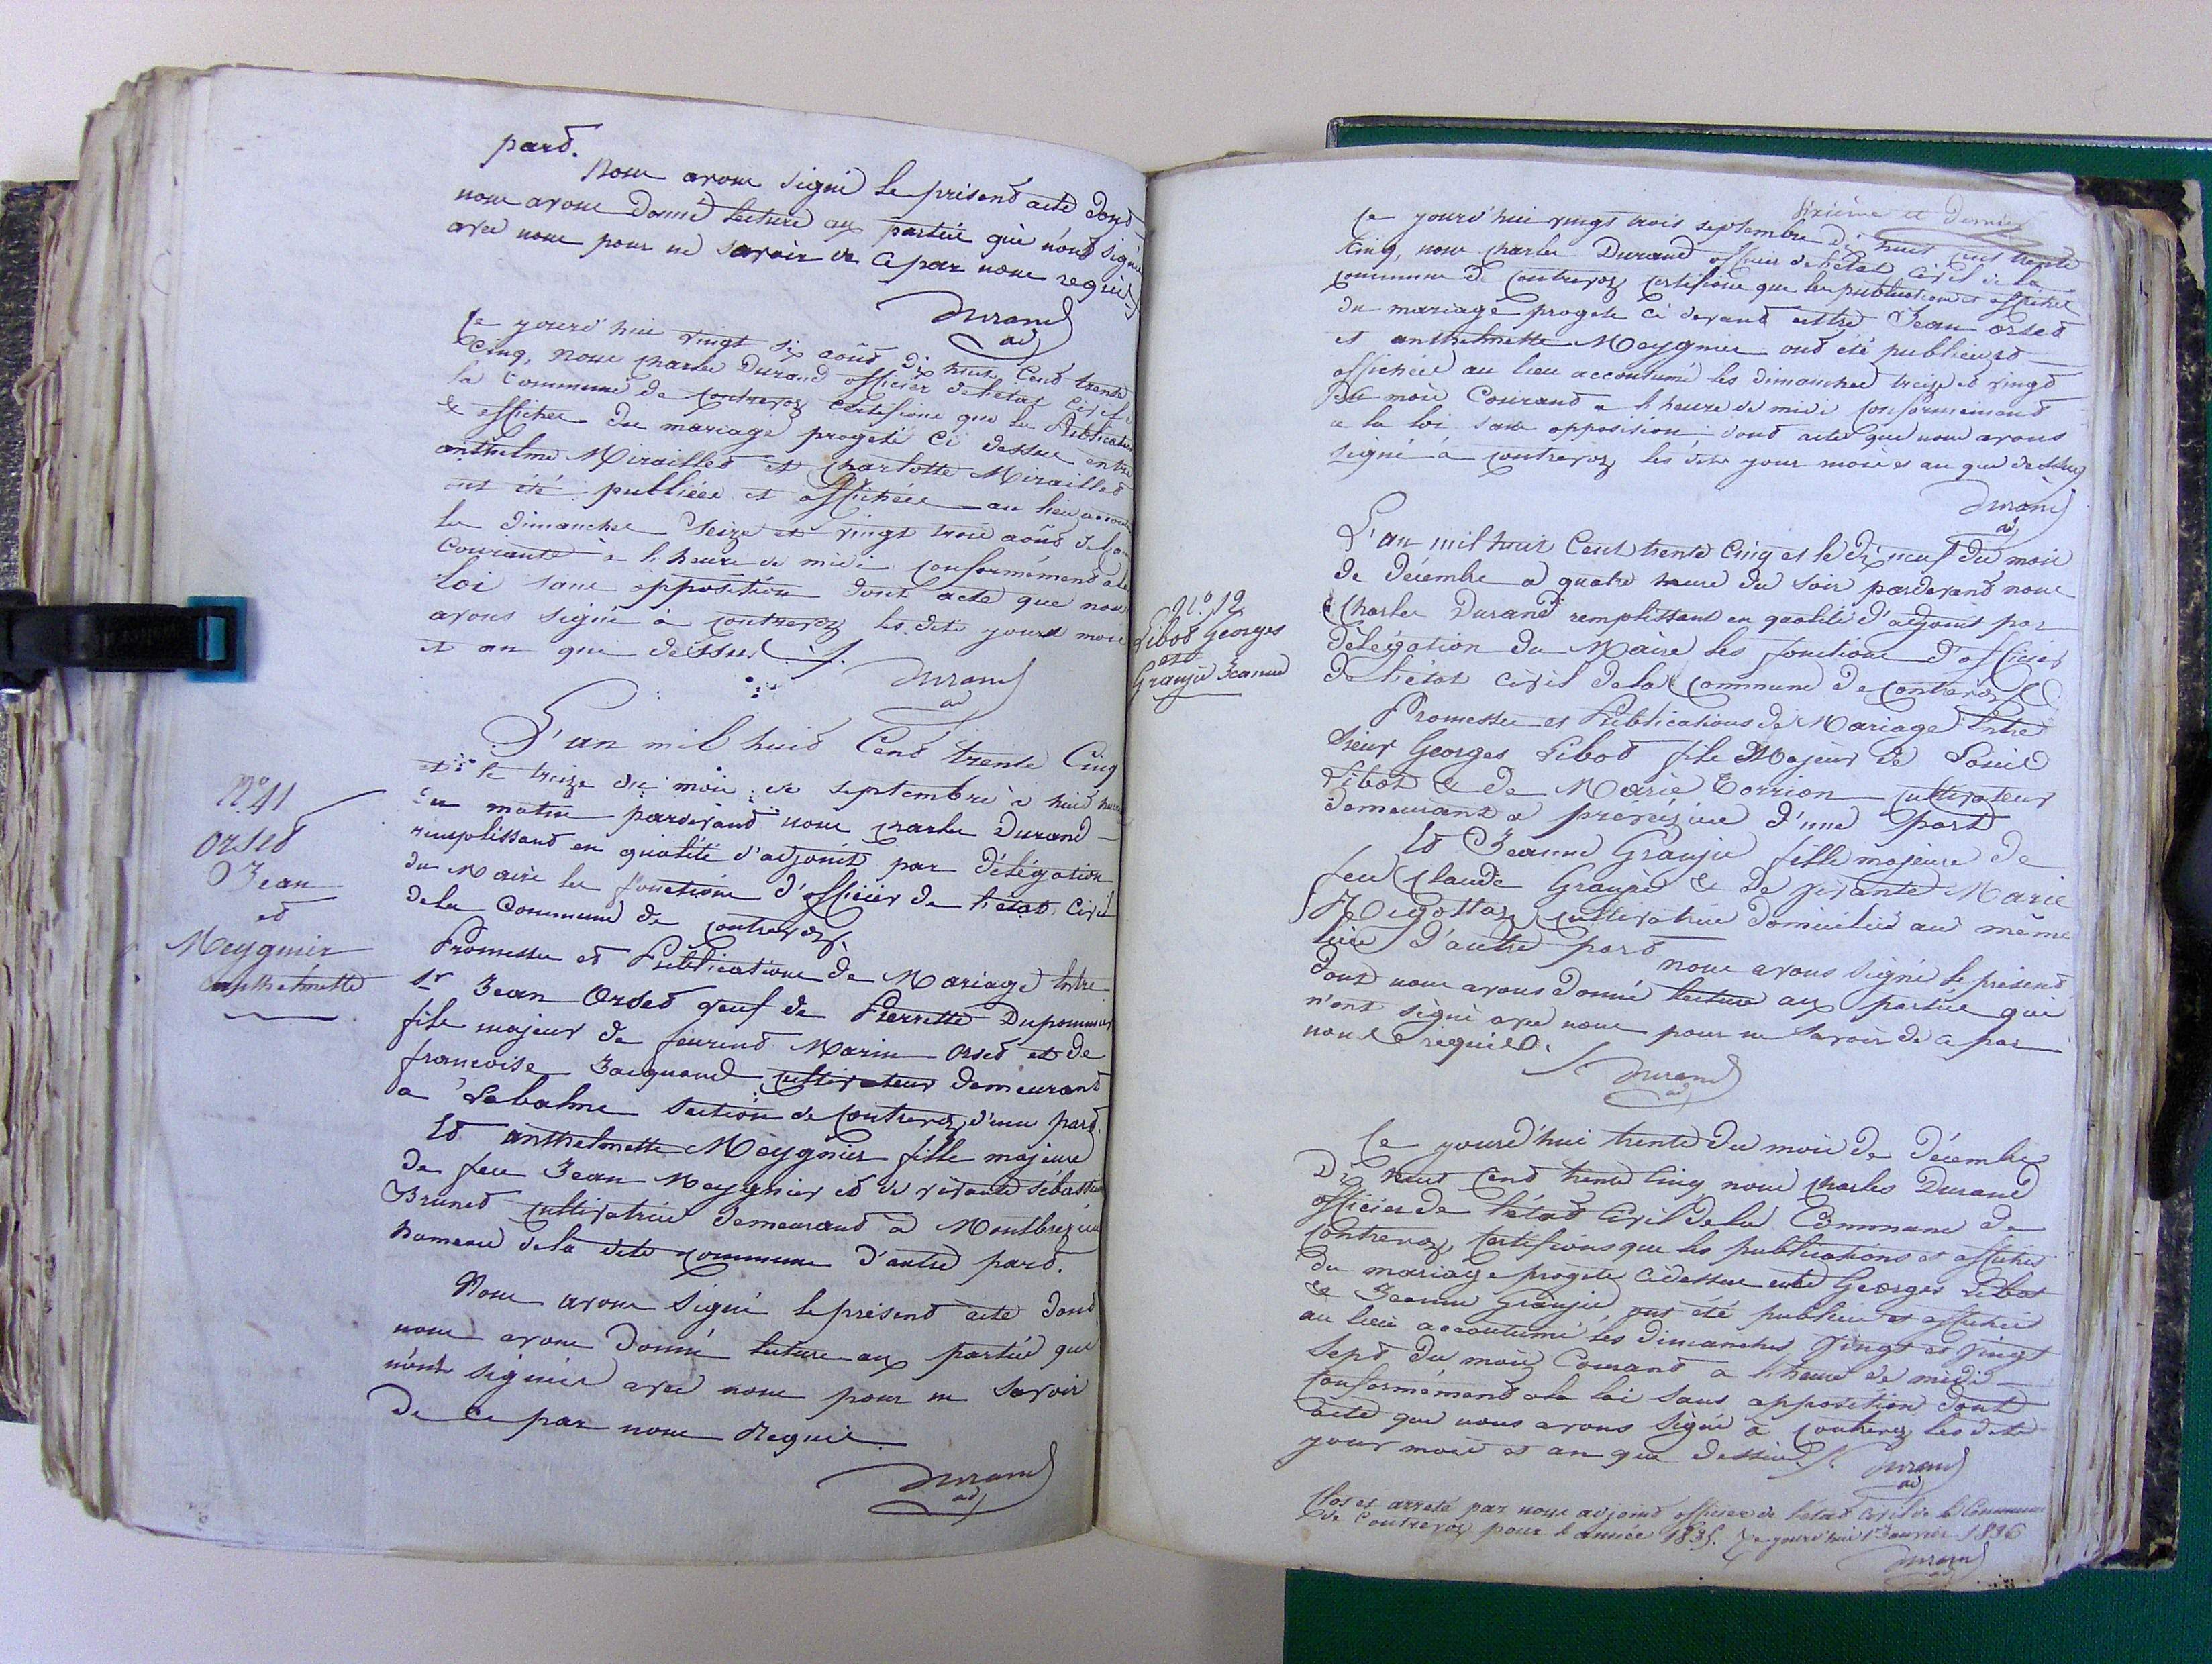 pard.
Nous avons signé le présend acte dond
nous avons donné lecture aux parties qui n'ond signé
avec nous pour ne savoir de ce par nous requis
Durand
ad
Ce yourd'hui vingt six aoûd dix huit Cend trente
Cinq, nous charles Durand officier de letat civil
la Commune de contrevoz certifions que les Publications
& affiches du mariage progeté ci dessus entre
anthelme Mirailled et charlotte Mirailled
ont été publiées et affichées au lieu
les dimanches seize et vingt trois aoûd de
Courante à l'heure de midi conformémend a la
loi sans opposition dont acte que nous
avons signé à contrevoz les dits yours mois
et an que dessus ./.
Durand
ad
L'an mil huid Cend trente Cinq
et le treize du mois de septembre à huid heures
du matin pardevand nous charles Durand
remplissand en qualité d'adjoint par délégation
du Maire les fonctions d'officier de l'etat civil
de la Commune de contrevoz.
N° 41
Orsed
Jean
ed
Meygnier
anthelmette
Promesses ed Publications de Mariage Entre
Sr Jean Orsed veuf de Pierrette Dupommier
fils majeur de Marin Orsed et de
francoise Jacquand cultivateur demeurand
a Labalme section de contrevoz d'une pard.
Ed anthelmette Meygnier fille majeure
de feu Jean Meygnier ed de vivante
Bruned cultivatrice demeurand a Montbrezieu
hameau de la dite commune d'autre pard.
Nous avons signé le présend acte dond
nous avons donné lecture aux parties qui
n'ond signées avec nous pour ne savoir
de ce par nous Requis.
Durand
ad
sixième et dernier
Ce yourd'hui vingt trois septembre dix huit cent trente
Cinq, nous charles Durand officier de l'état civil de la
commune de contrevoz certifions que les publications et affiches
du mariage progeté ci devand entre Jean orsed
et anthelmette Meygnier ond été publiées ed
affichées au lieu accoutumé les dimanches treize ed vingd
du mois Courand a l'heure de midi conformémend
a la loi sans opposition dond acte que nous avons
signé à contrevoz les dits yours mois et an que dessus
Durand
ad
L'an mil huit Cent trente Cinq et le dix neuf du mois
de décembre a quatre heures du soir pardevand nous
Charles Durand remplissant en qualité d'adjoint par
délégation du Maire les fonctions d'officier
de l'état civil de la commune de contrevoz
N° 12
Libod Georges
et
Granjié Jeanne
Promesses et Publications de Mariage Entre
Sieur Georges Libod fils Majeur de Louis
Libot & de Marie Torrion cultivateur
demeurant a préveizieu d'une part
Ed Jeanne Granjié fille majeure de
feu Claude Granjié & de vivante Marie
Migottaz cultivatrice domiciliée au même
lieu d'autre pard nous avons signé le présend
dont nous avons donné lecture aux parties qui
n'ont signé avec nous pour ne savoir de ce par
nous requis.
Durand
ad
Ce yourd'hui trente du mois de décembre
Dix huit Cend trente Cinq nous charles Durand
officier de l'étad civil de la Commune de
contrevoz, certifions que les publications et affiches
du mariage progeté cidessus entre Georges Libot
& Jeanne Granjié ont été publiées et affichées
au lieu accoutumé les dimanches vingt et vingt
sept du mois Courand a l'heure de midi
conformémend a la loi sans opposition dont
acte que nous avons signé à contrevoz les dits
yours mois et an que dessus ./.
Durand
ad
Clos et arreté par nous adjoind officier de l'état civil de la Commune
de Contrevoz pour l'année 1835. Ce yourd'hui 1er Janvier 1836
Durand
ad